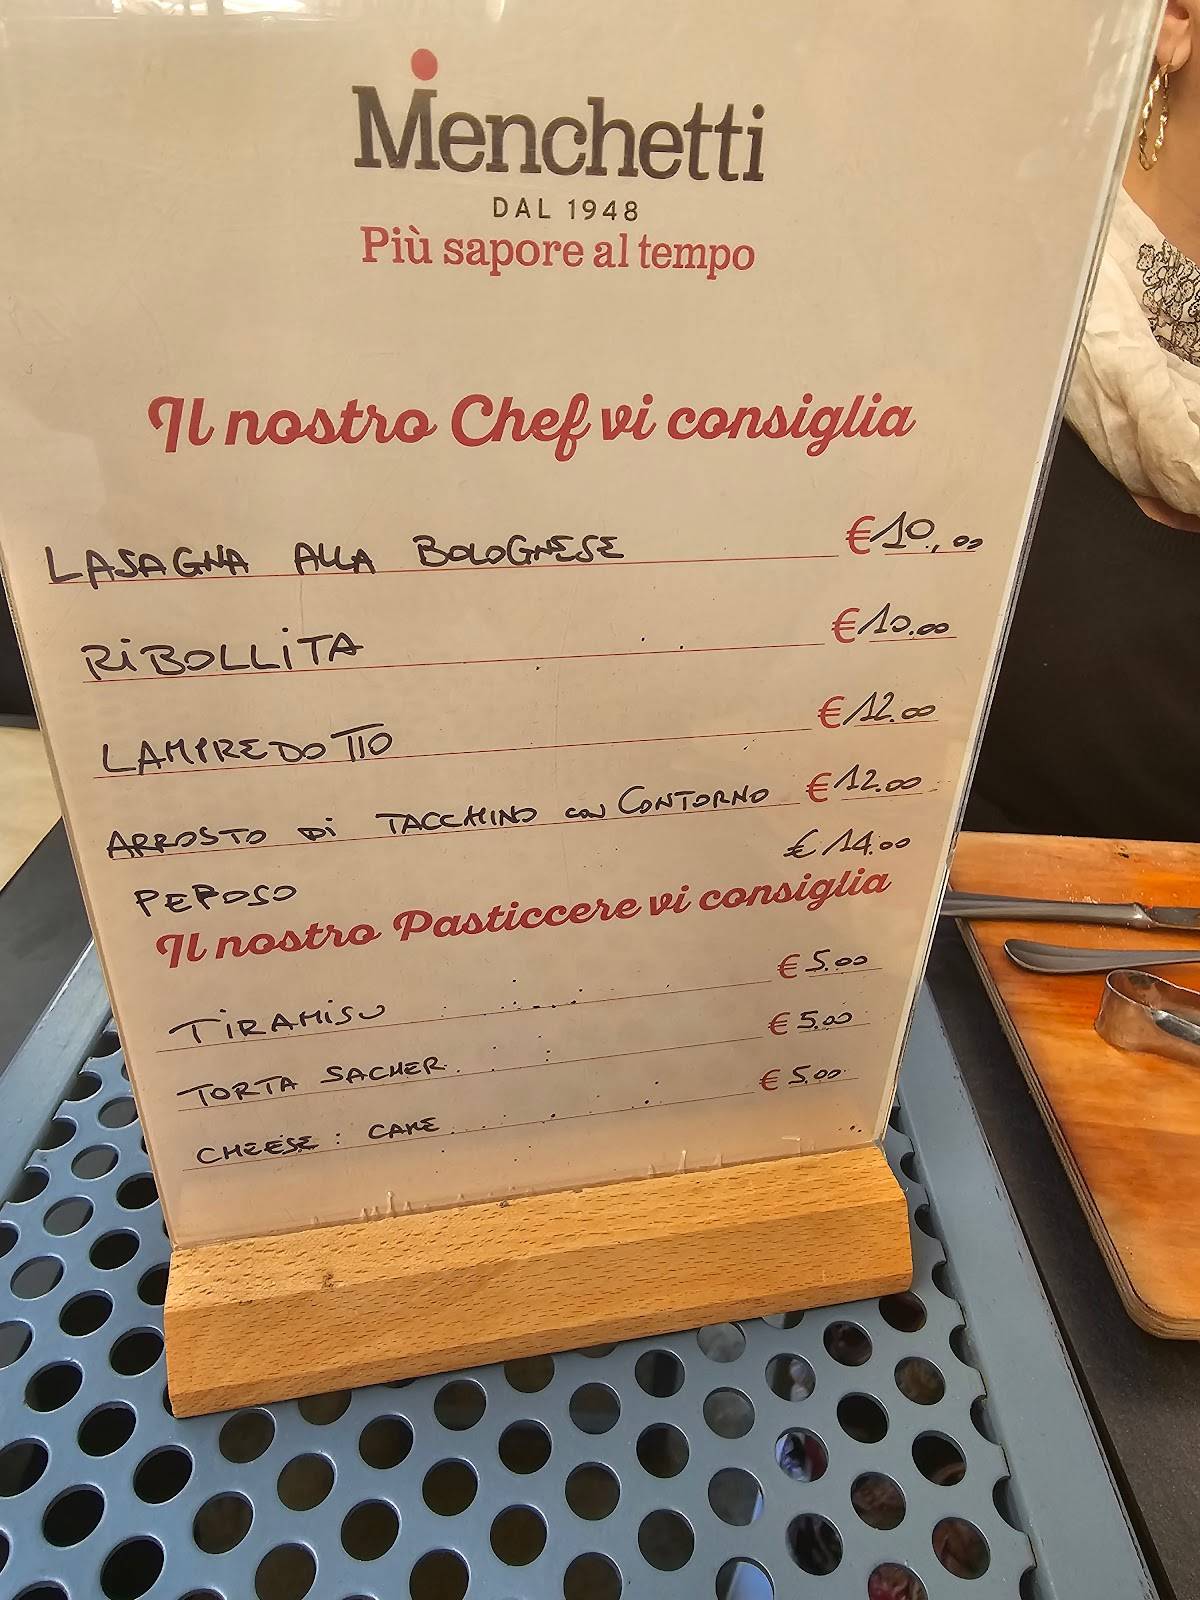 Menchetti
DAL 1948
Più sapore al tempo
Il nostro Chef vi consiglia
LASAGNA ALLA BOLOGNESE €10.,00
RIBOLLITA €10.00
LAMPREDOTTO €12.00
ARROSTO DI TACCHINO CON CONTORNO €12.00
PEPOSO €14.00
Il nostro Pasticcere vi consiglia
TIRAMISU €5.00
TORTA SACHER €5.00
CHEESE : CAKE €5.00